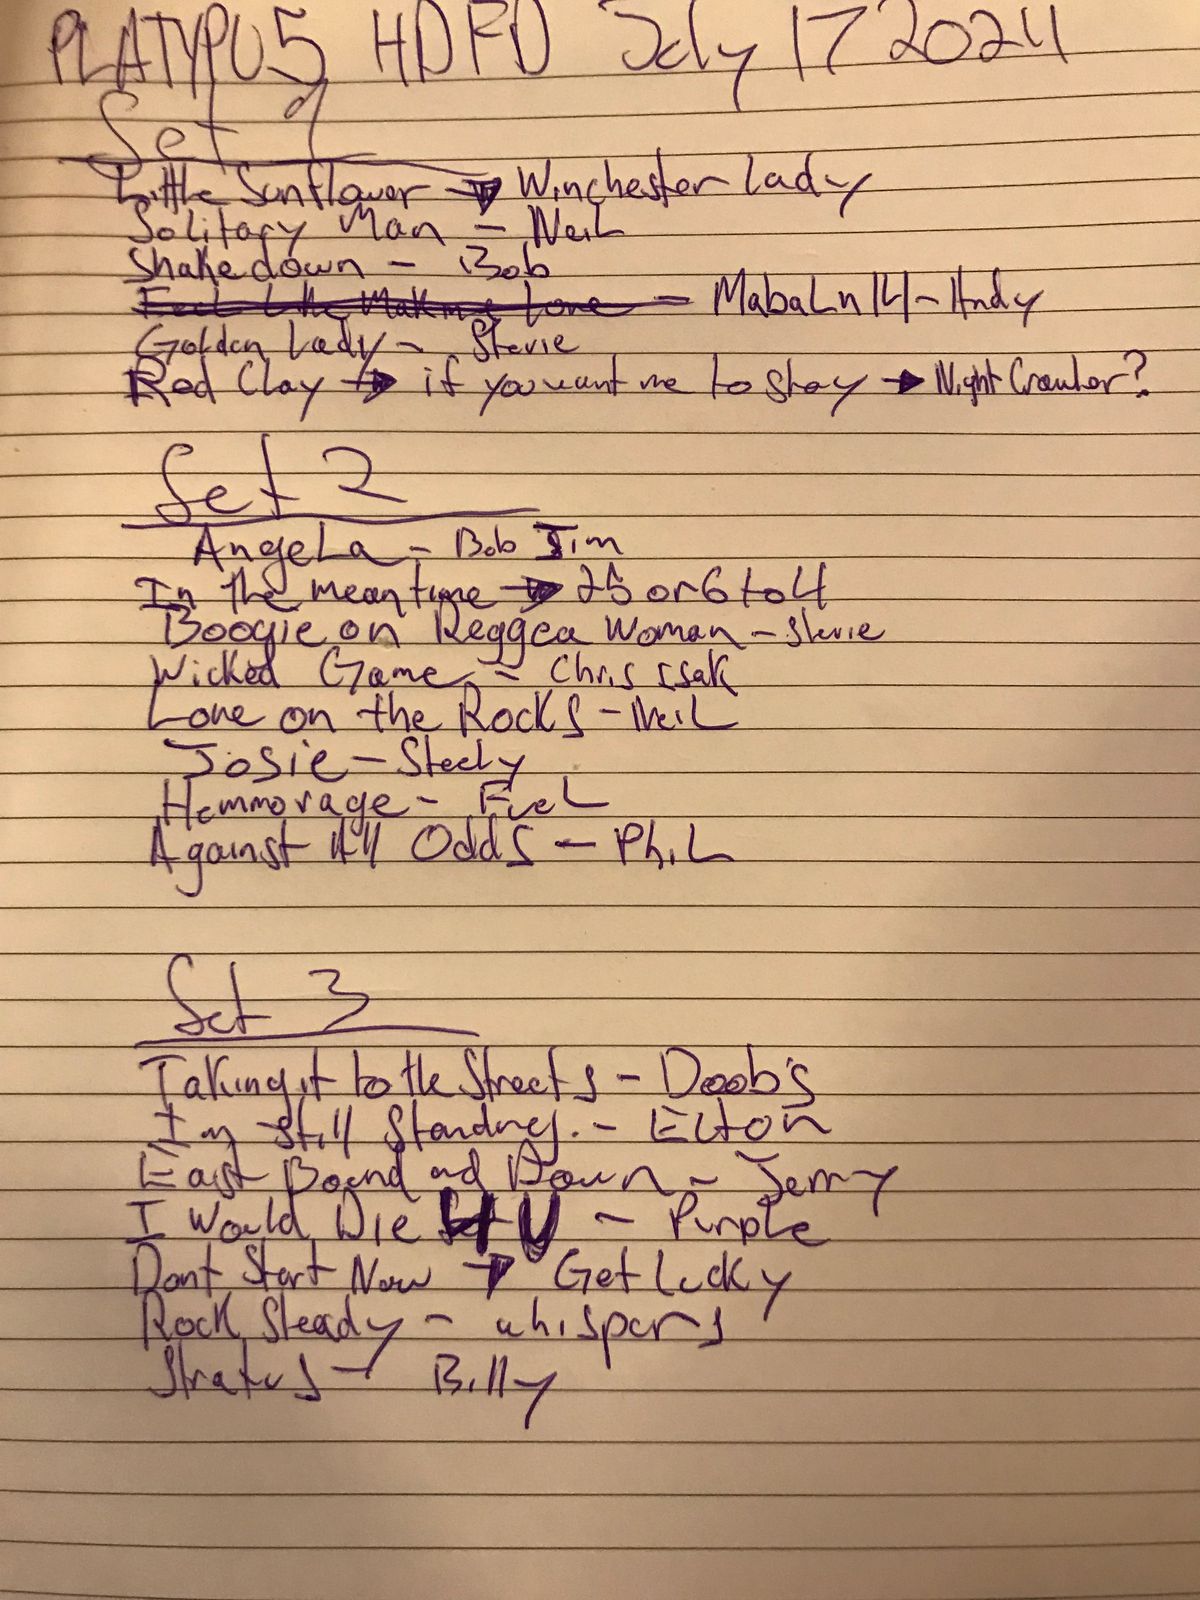 PLATYPUS HDFD July 17 2024
Set 1
Little Sunflower → Winchester Lady
Solitary Man - Neil
Shakedown - Bob
Feel Like Making Love - MabaLn 14 - Andy
Golden Lady - Stevie
Red Clay → if you want me to stay → Night Crawler?
Set 2
AngeLa - Bob Jim
In the meantime → 25 or 6 to 4
Boogie on Reggea Woman - Stevie
Wicked Game - Chris Isak
Love on the Rocks - NeiL
Josie - Steely
Hemmorage - FueL
Against All Odds - PhiL
Set 3
Taking it to the Streets - Doob's
Im Still Standing. - Elton
East Bound and Down - Jerry
I Would Die 4 U - Purple
Dont Start Now → Get Lucky
Rock Steady - whispers
Stratus - Billy